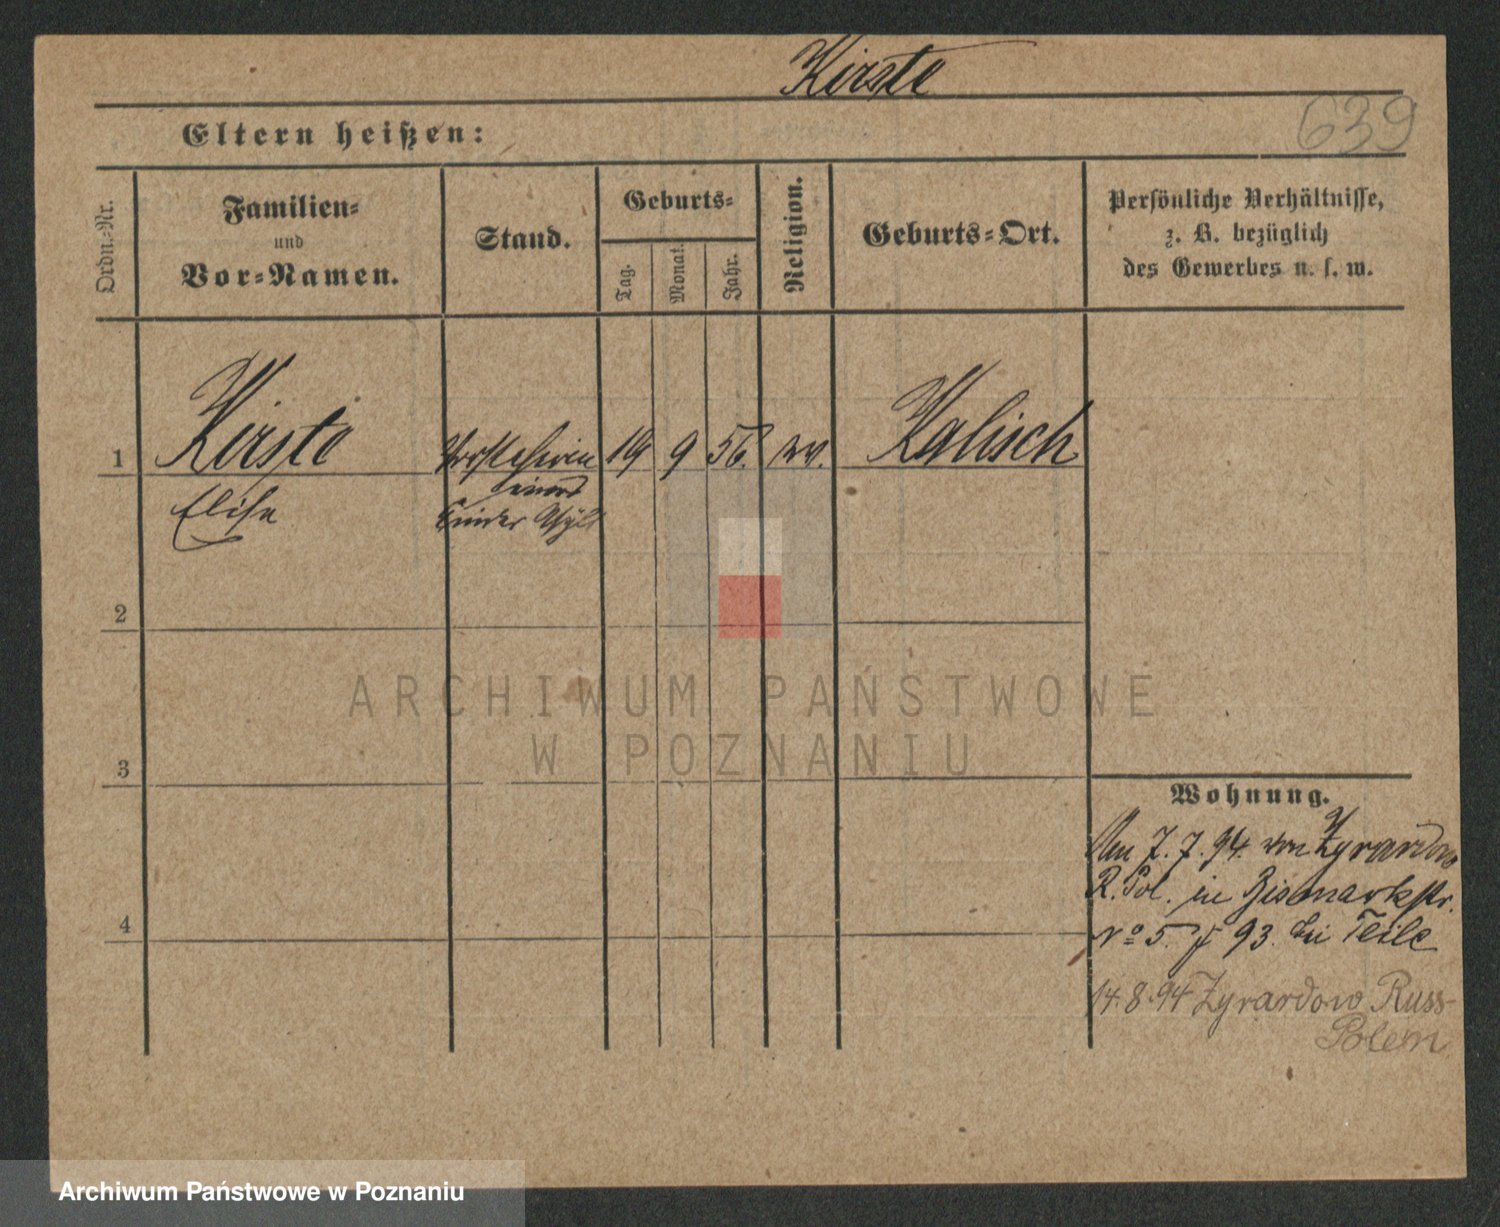 Kirste
639
Eltern heißen:
Ordn.-Nr.
Familien-
und
Vor-Namen.
Stand.
Geburts-
Tag.
Monat.
Jahr.
Religion.
Geburts-Ort.
Persönliche Verhältnisse,
z. B. bezüglich
des Gewerbes u. s. w.
1
Kirste
Vorsteherin
19
9
56.
ev.
Kalisch
Elise
eines
Kinder Asyls
2
3
4
Wohnung.
Am 7. 7. 94. von Zyrardow
R. Pol. in Bismarckstr.
No 5. 93. bei Teile
14.8.94 Zyrardow Russ-
Polen
ARCHIWUM PAŃSTWOWE
W POZNANIU
Archiwum Państwowe w Poznaniu